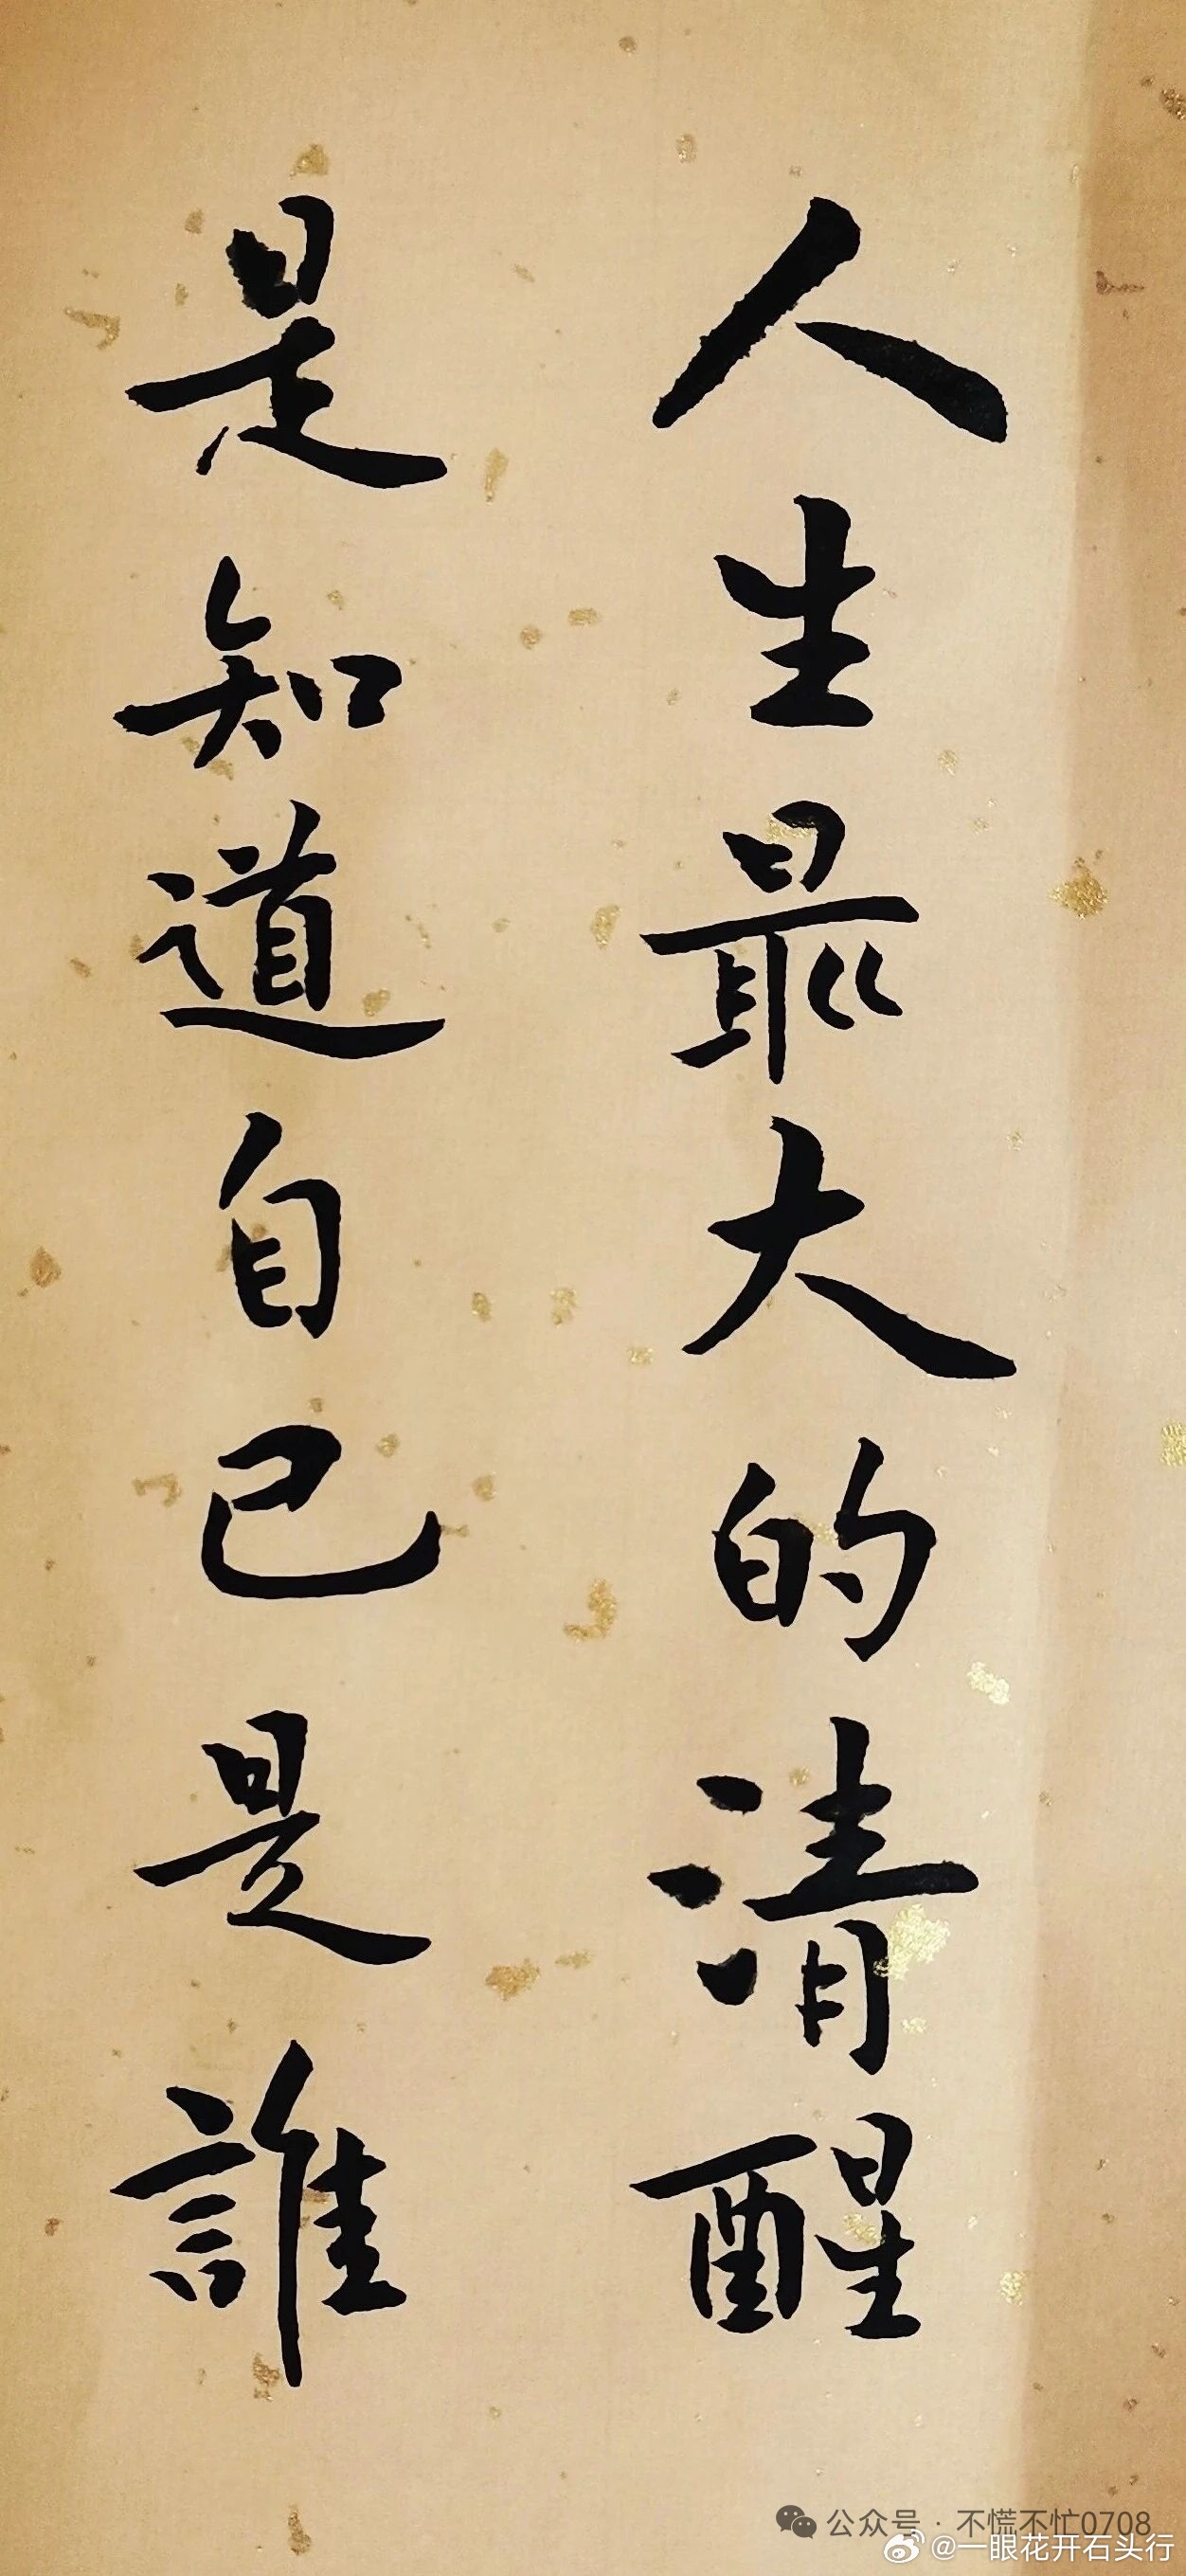 人生最大的清醒
是知道自己是誰
公众号 · 不慌不忙0708
@一眼花开石头行